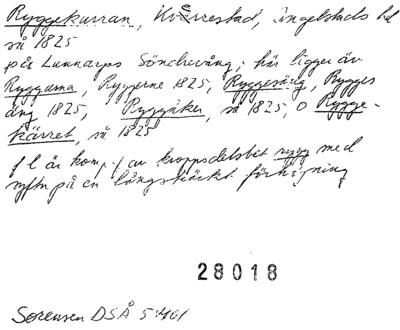 Ryggekurran, Ö Herrestad, Ingelstads hd
så 1825
på Lunnarps Södrevång; här ligger äv
Ryggarna, Ryggerne 1825, Ryggesäng, Rygges
äng 1825, Ryggåker, så 1825, o Rygge-
kärret, så 1825
fl är komp. av kroppsdelsbet rygg med
syftn på en långsträckt förhöjning
28018
Sørensen DSÅ 5:401